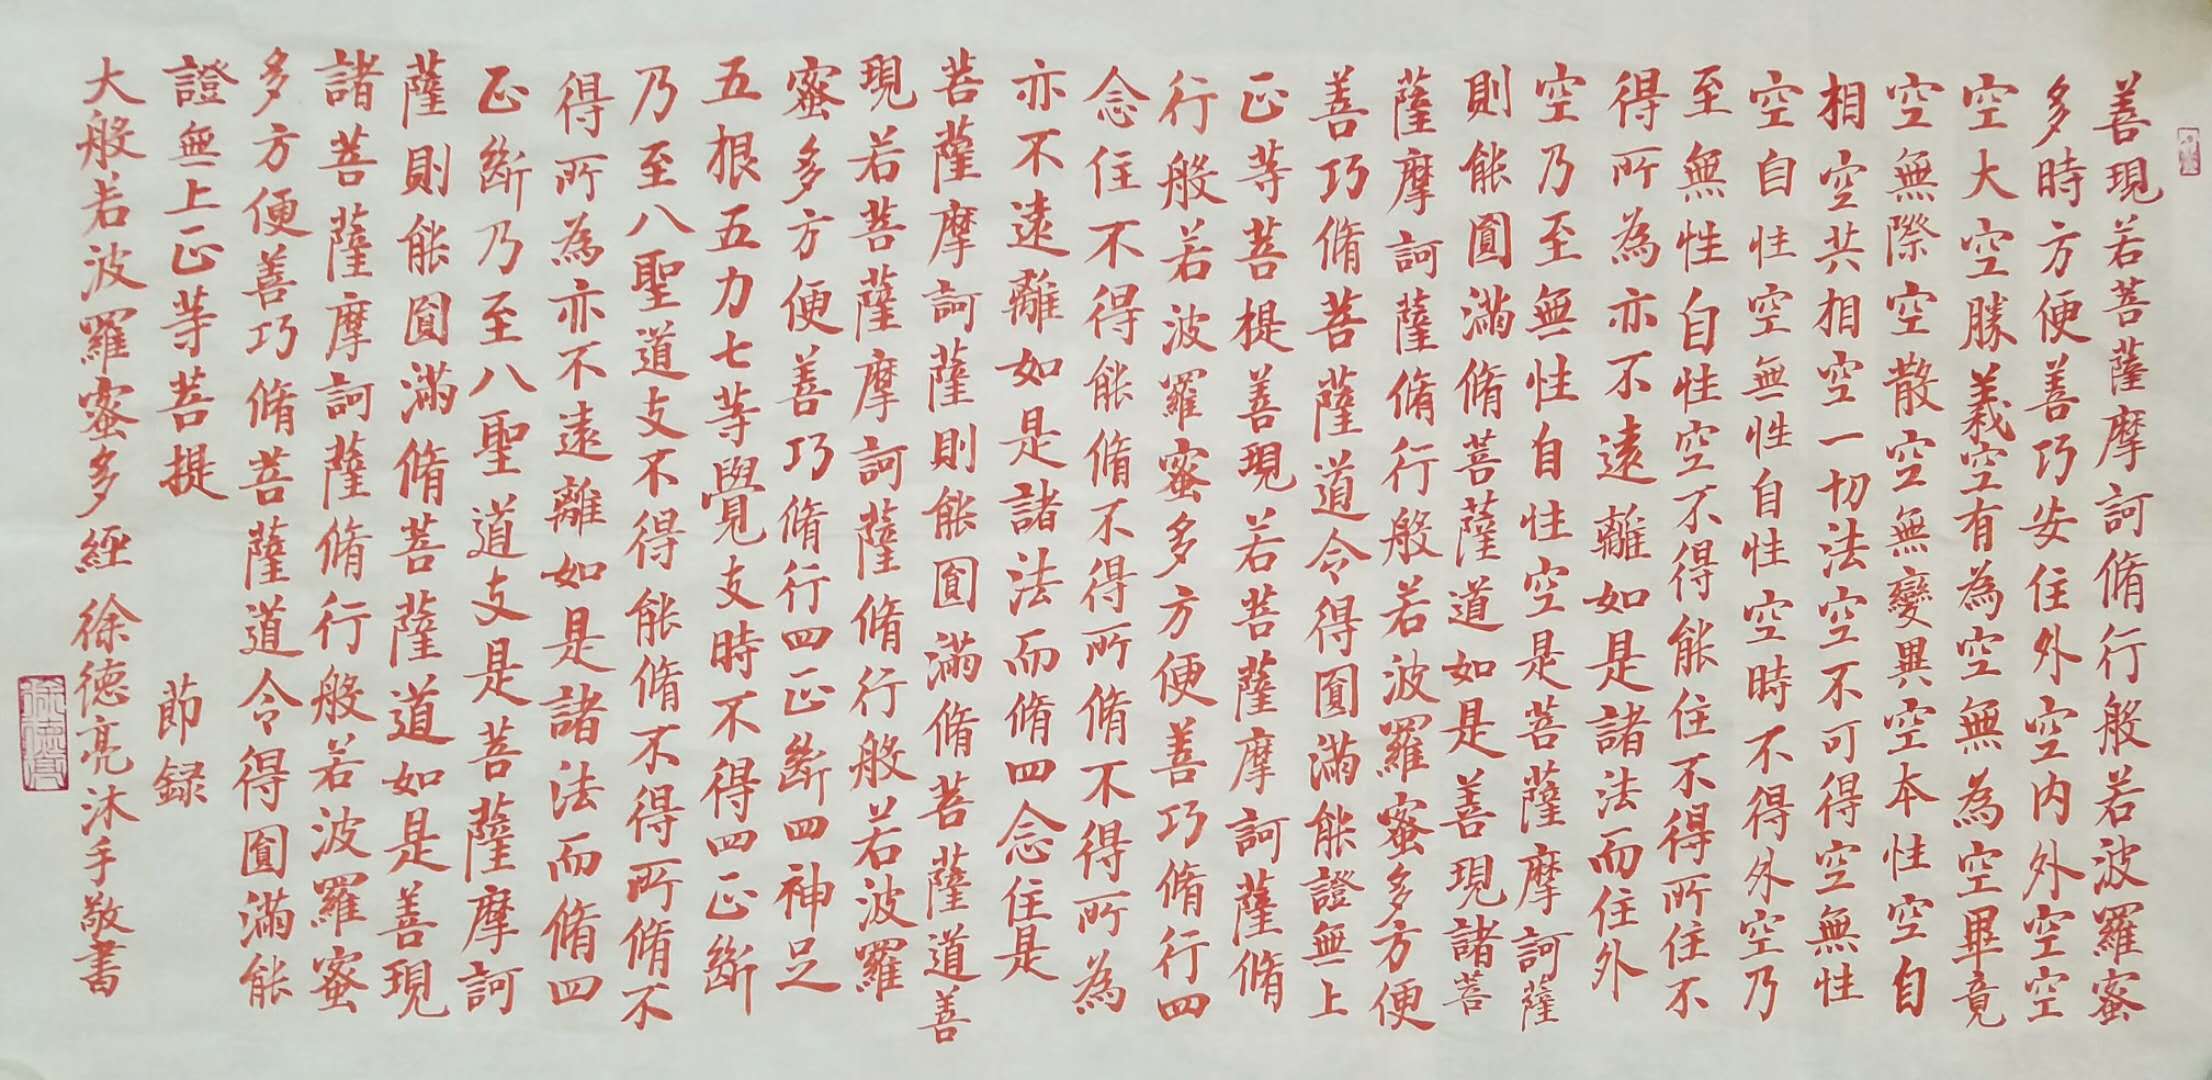 善現若菩薩摩訶薩脩行般若波羅蜜
多時方便善巧安住外空内外空空
空大空勝義空有為空無為空畢竟
空無際空散空無變異空本性空自
相空共相空一切法空不可得空無性
空自性空無性自性空時不得外空乃
至無性自性空不得能住不得所住不
得所為亦不遠離如是諸法而住外
空乃至無性自性空是菩薩摩訶薩
則能圓滿脩菩薩道如是善現諸菩
薩摩訶薩脩行般若波羅蜜多方便
善巧脩菩薩道令得圓滿能證無上
正等菩提善現若菩薩摩訶薩脩
行般若波羅蜜多方便善巧脩行四
念住不得能脩不得所脩不得所為
亦不遠離如是諸法而脩四念住是
菩薩摩訶薩則能圓滿脩菩薩道善
現若菩薩摩訶薩脩行般若波羅
蜜多方便善巧脩行四正斷四神足
五根五力七等覺支時不得四正斷
乃至八聖道支不得能脩不得所脩不
得所為亦不遠離如是諸法而脩四
正斷乃至八聖道支是菩薩摩訶
薩則能圓滿脩菩薩道如是善現
諸菩薩摩訶薩脩行般若波羅蜜
多方便善巧脩菩薩道令得圓滿能
證無上正等菩提 節録
大般若波羅蜜多經 徐德亮沐手敬書
徐德亮